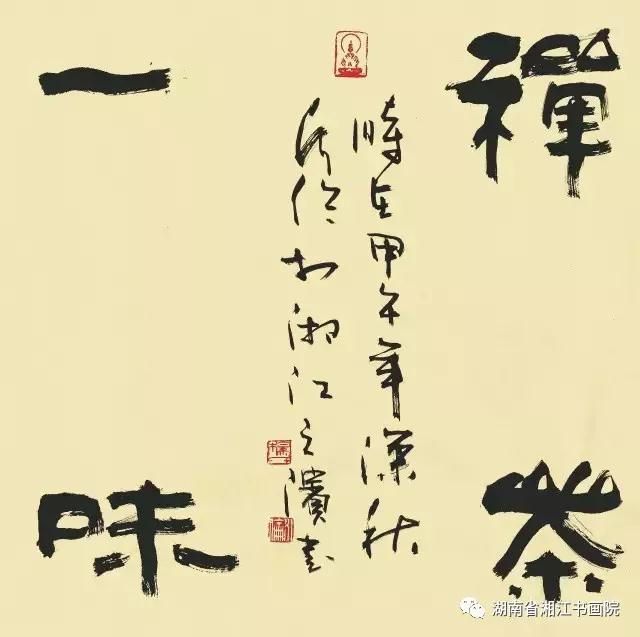 禪茶
一味
時在甲午年深秋
於湘江之濱書
湖南省湘江书画院